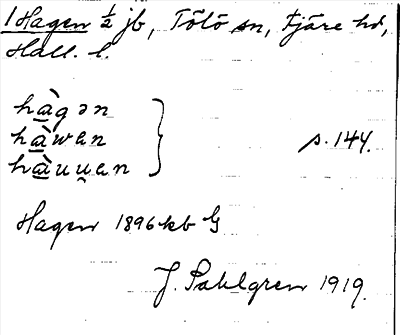 1 Hagen ½ jb, Tölö sn, Fjäre hd,
Hall. l.
hàgən
hàwen
hàuu̯en
s. 144.
Hagen 1896 kb
J. Sahlgren 1919.